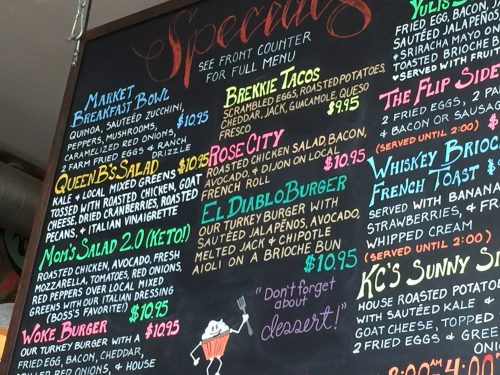 Specials
SEE FRONT COUNTER
FOR FULL MENU
MARKET
BREAKFAST BOWL
QUINOA, SAUTÉED ZUCCHINI,
PEPPERS, MUSHROOMS, $10.95
CARAMELIZED RED ONIONS,
FARM FRIED EGGS & RANCH
DRIZZLE
QUEEN B'S SALAD $10.95
KALE & LOCAL MIXED GREENS
TOSSED WITH ROASTED CHICKEN, GOAT
CHEESE, DRIED CRANBERRIES, ROASTED
PECANS, & ITALIAN VINAIGRETTE
MOM'S SALAD 2.0 (KETO!)
ROASTED CHICKEN, AVOCADO, FRESH
MOZZARELLA, TOMATOES, RED ONIONS,
RED PEPPERS OVER LOCAL MIXED
GREENS WITH OUR ITALIAN DRESSING
BOSS'S FAVORITE!) $10.95
WOKE BURGER $10.95
OUR TURKEY BURGER WITH A
FRIED EGG, BACON, CHEDDAR,
RED ONIONS, & HOUSE
BREKKIE TACOS
SCRAMBLED EGGS, ROASTED POTATOES,
CHEDDAR, JACK, GUACAMOLE, QUESO
FRESCO $9.95
ROSE CITY
ROASTED CHICKEN SALAD, BACON,
AVOCADO, & DIJON ON LOCAL
FRENCH ROLL $10.95
EL DIABLO BURGER
OUR TURKEY BURGER WITH
SAUTÉED JALAPEÑOS, AVOCADO,
MELTED JACK & CHIPOTLE
AIOLI ON A BRIOCHE BUN
$10.95
"Don't forget
about
dessert!"
YULI'S
FRIED EGG, BACON, J
SAUTÉED JALAPEÑOS
& SRIRACHA MAYO ON
TOASTED BRIOCHE B
*SERVED WITH FRU
THE FLIP SIDE
2 FRIED EGGS, 2 PA
& BACON OR SAUSAG
(SERVED UNTIL 2:00) $
WHISKEY BRIOC
FRENCH TOAST $
SERVED WITH BANANA
STRAWBERRIES, & FR
WHIPPED CREAM
(SERVED UNTIL 2:00)
KC'S SUNNY SI
HOUSE ROASTED POTATO
WITH SAUTÉED KALE &
GOAT CHEESE, TOPPED
2 FRIED EGGS & GREE
ONIO
8:00AM - 4:00